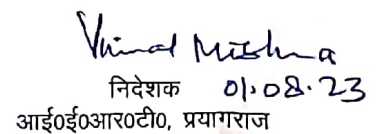 Vimal Mishra
निदेशक 01.08.23
आई०ई०आर०टी०, प्रयागराज